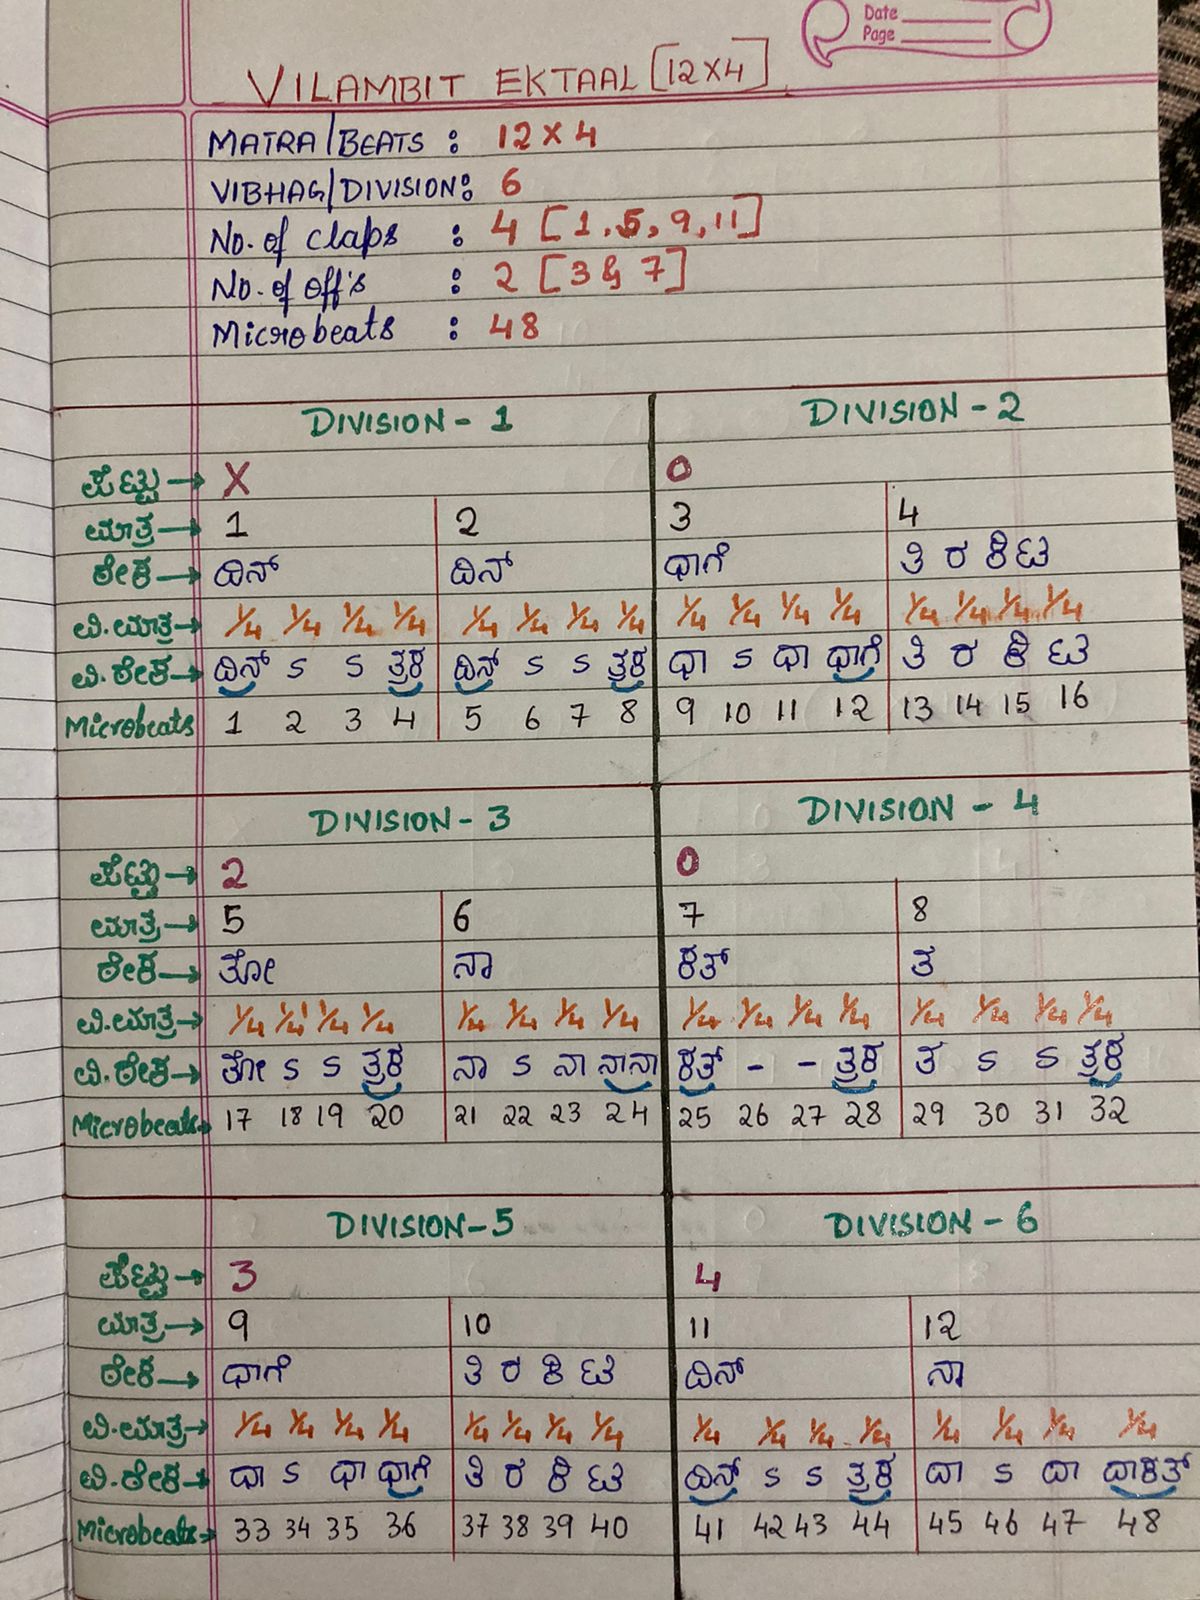 Date
Page
VILAMBIT EKTAAL [12X4]
MATRA/BEATS : 12 X 4
VIBHAG/DIVISION: 6
No. of claps : 4 [1, 5, 9, 11]
No. of off's : 2 [3 & 7]
Microbeats : 48
DIVISION - 1 DIVISION - 2
ಪೆಟ್ಟು → X 0
ಮಾತ್ರ → 1 2 3 4
ಠೇಕ → ದಿನ್ ದಿನ್ ಧಾಗೆ ತಿ ರ ಕಿ ಟ
ವಿ.ಮಾತ್ರ → 1/4 1/4 1/4 1/4 1/4 1/4 1/4 1/4 1/4 1/4 1/4 1/4 1/4 1/4 1/4 1/4
ವಿ.ಠೇಕ → ದಿನ್ ಽ ಽ ತ್ರಕ ದಿನ್ ಽ ಽ ತ್ರಕ ಧಾ ಽ ಧಾ ಧಾಗೆ ತಿ ರ ಕಿ ಟ
Microbeats 1 2 3 4 5 6 7 8 9 10 11 12 13 14 15 16
DIVISION - 3 DIVISION - 4
ಪೆಟ್ಟು → 2 0
ಮಾತ್ರ → 5 6 7 8
ಠೇಕ → ತೋ ನಾ ಕತ್ ತ
ವಿ.ಮಾತ್ರ → 1/4 1/4 1/4 1/4 1/4 1/4 1/4 1/4 1/4 1/4 1/4 1/4 1/4 1/4 1/4 1/4
ವಿ.ಠೇಕ → ತೋ ಽ ಽ ತ್ರಕ ನಾ ಽ ನಾ ನಾನಾ ಕತ್ - - ತ್ರಕ ತ ಽ ಽ ತ್ರಕ
Microbeats → 17 18 19 20 21 22 23 24 25 26 27 28 29 30 31 32
DIVISION - 5 DIVISION - 6
ಪೆಟ್ಟು → 3 4
ಮಾತ್ರ → 9 10 11 12
ಠೇಕ → ಧಾಗೆ ತಿ ರ ಕಿ ಟ ದಿನ್ ನಾ
ವಿ.ಮಾತ್ರ → 1/4 1/4 1/4 1/4 1/4 1/4 1/4 1/4 1/4 1/4 1/4 1/4 1/4 1/4 1/4 1/4
ವಿ.ಠೇಕ → ದಾ ಽ ಧಾ ಧಾಗೆ ತಿ ರ ಕಿ ಟ ದಿನ್ ಽ ಽ ತ್ರಕ ದಾ ಽ ದಾ ದಾಕತ್
Microbeats → 33 34 35 36 37 38 39 40 41 42 43 44 45 46 47 48